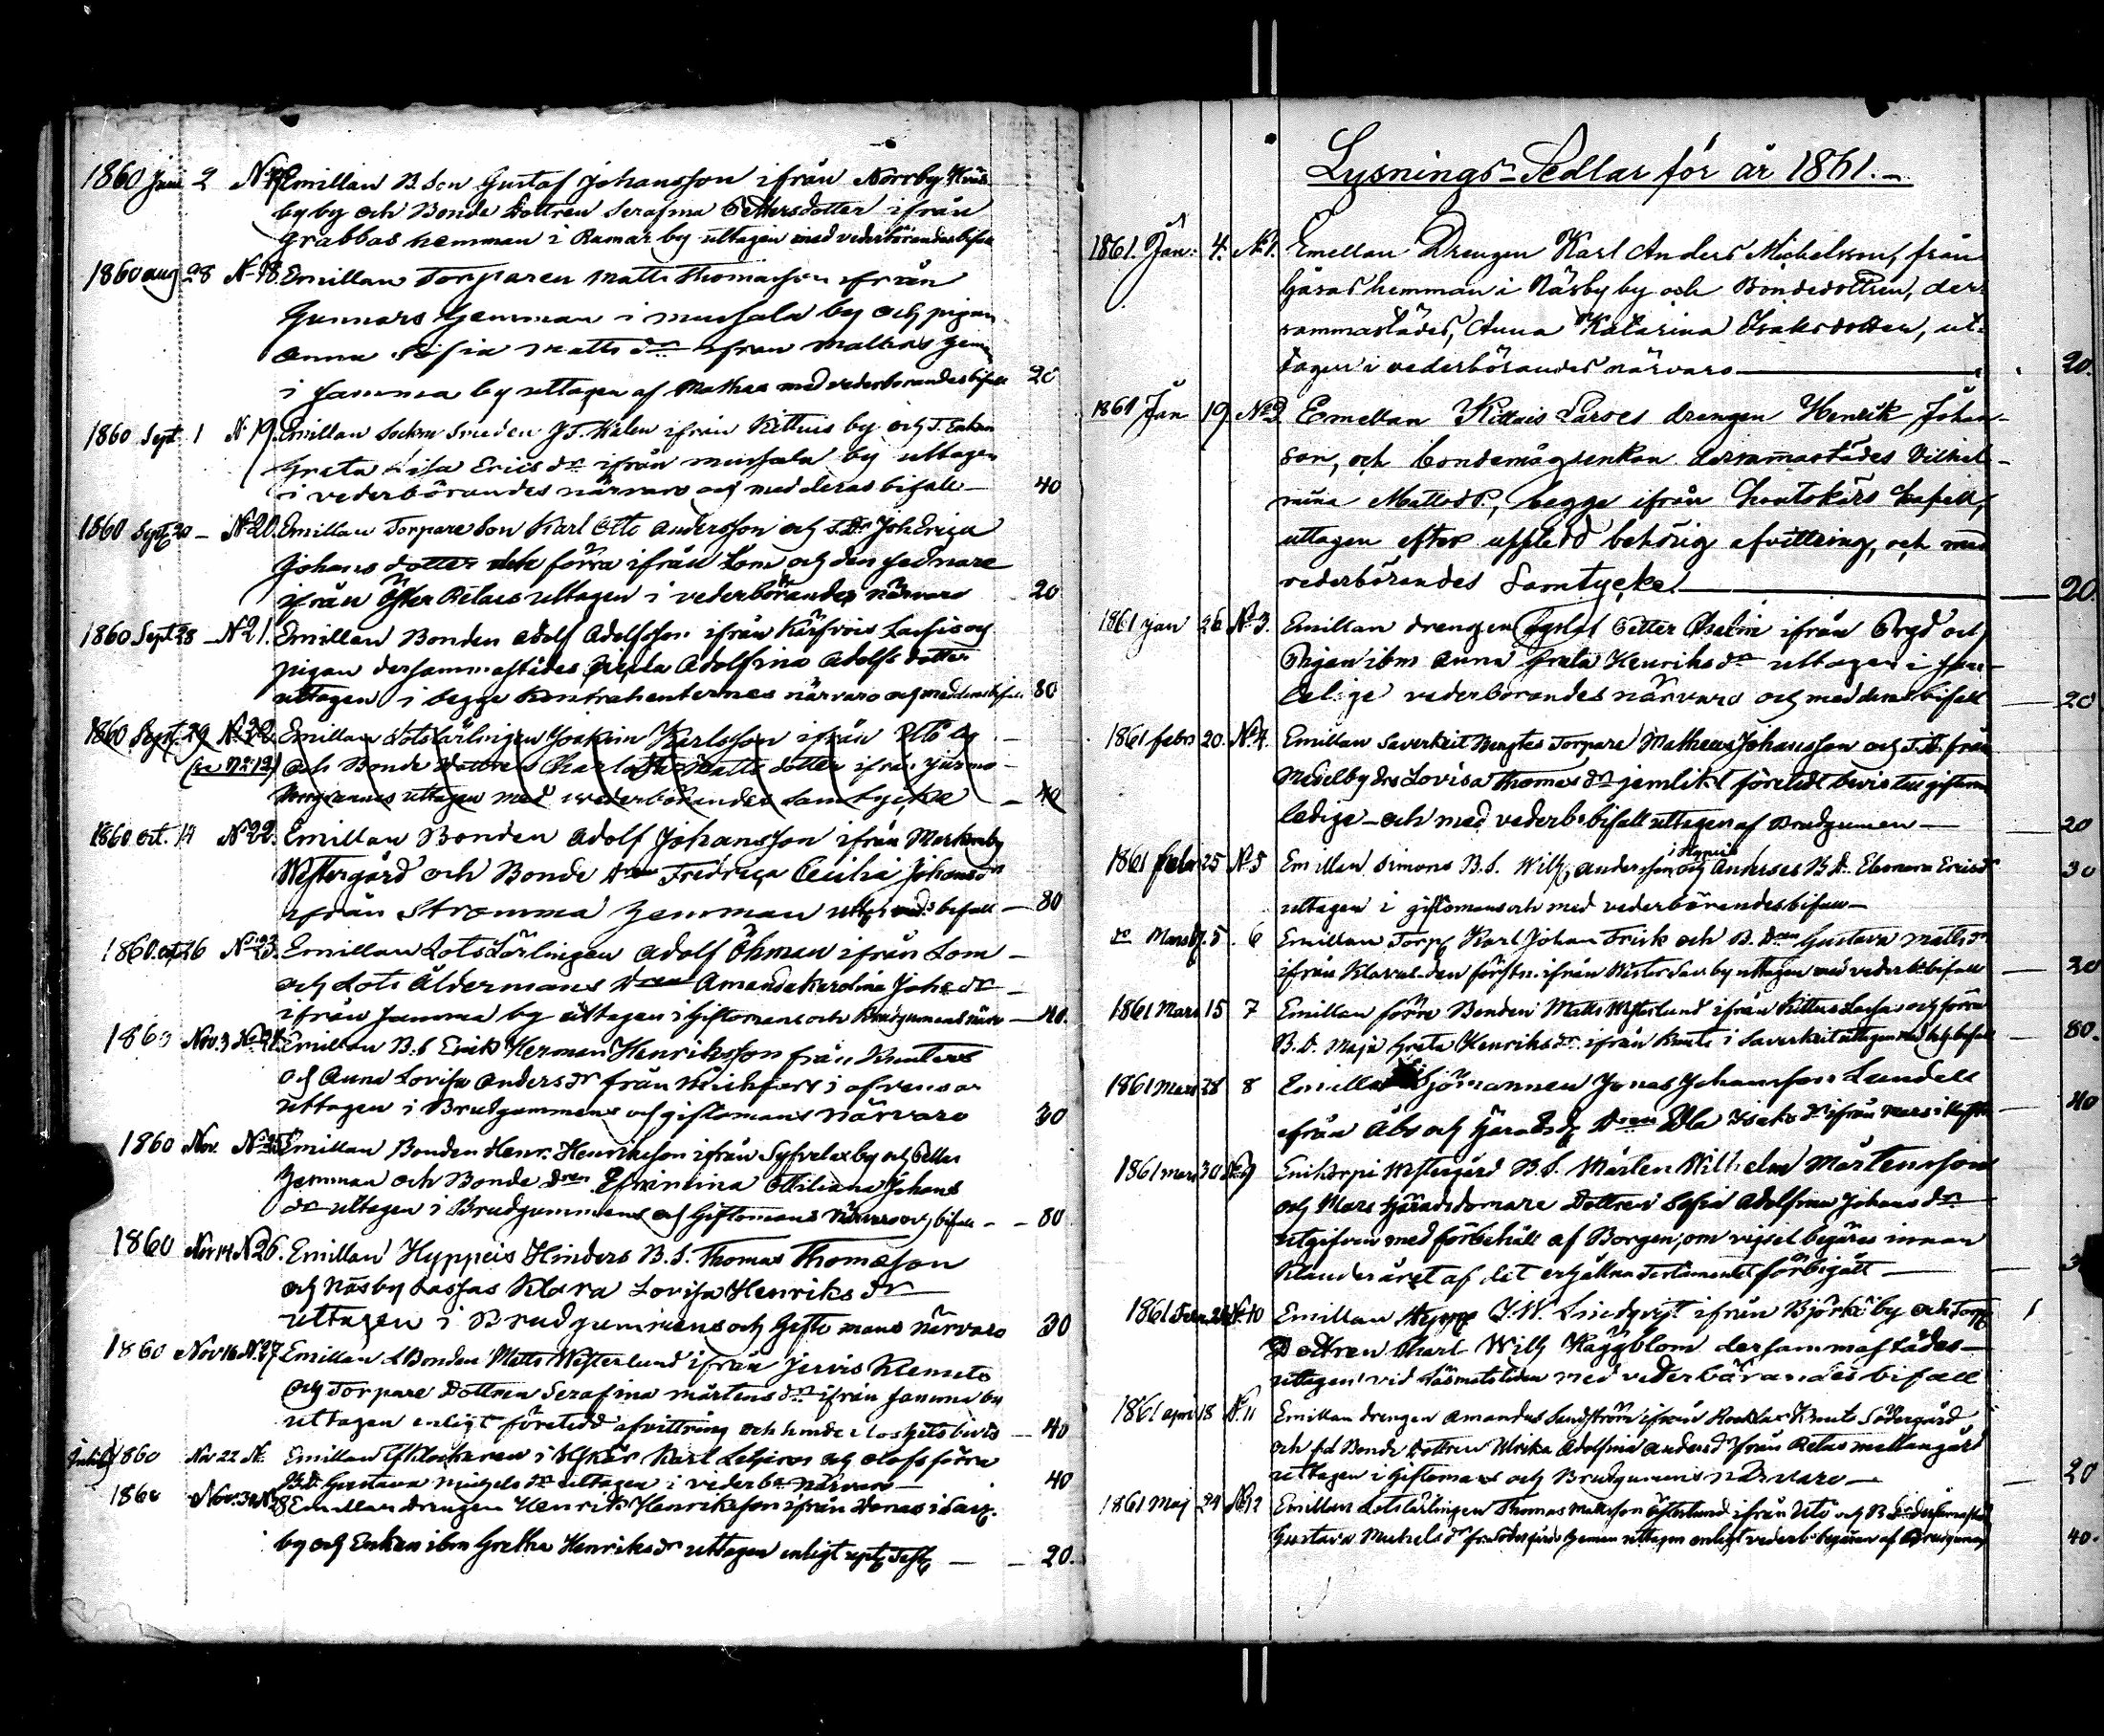 1860 Juni 2 N 17 Emillan B. Son Gustaf Johansson ifrån Norrby Hvis
byby och Bonde Dottren Serafina Pettersdotter ifrån
Grabbas hemman i Ramarby uttagen med vederbörandes bifall
1860 aug 28 N 18. Emillan Torparen Matts Thomasson ifrån
Gunnars hemman i mussala by och pigan
Anna Sofia Matts dr ifrån Mathas hem
i Jamma by uttagen af Mathas med vederborandes bifall 20
1860 Sept. 1 N 19. Emillan Sockne Smeden J. T. Kalen ifrån Kittuis by och T. Enkan
Greta Lisa Erics dr ifrån mussala by uttagen
i vederbörandes närvaro och med deras bifall 40
1860 Sept 20 - N 20. Emillan Torpare Son Karl Otto Andersson och Joh Erica
Johans dotter den förra ifrån Lom och den sednare
ifrån Öster Retais uttagen i vederbörandes närvaro 20
1860 Sept 28 - N 21. Emillan Bonden Adolf Adolfsson ifrån Kärfvois Lassis och
pigan dersammastädes Adolfina Adolfs dotter
uttagen i begge Kontrahenternes närvaro och med deras bifall 80
1860 Sept. 29 N 22. Emillan Lotslärlingen Joakim Karlsson ifrån Utö by
(se N 12) och Bonde Dottren Charlotta Matts dotter ifrån Jurmo
uttagen med wederbörandes Samtycke - 40
1860 Oct. 14 N 22. Emillan Bonden Adolf Johansson ifrån Markomby
Westergård och Bonde Dren Fredrica Cecilia Johans dr
ifrån Stromma hemman uttagen med bifall - 80
1860 oct 26 N 23. Emillan Lots Lärlingen Adolf Öhman ifrån Lom -
och Lots Åldermans Dren Amanda Karolina Johs dr -
ifrån Jamma by uttagen i Giftomans och Brudgumens närv - 40.
1860 Nov. 3 N 24 Emillan B. S Erik Herman Henriksson från Knuters
och Anna Lovisa Anders dr från i ofvensor
uttagen i Brudgummens och giftomans närvaro 30
1860 Nov. N 25 Emillan Bonden Henr. Henriksson ifrån Syfvelax by och Pelles
hemman och Bonde Dren Efrimina Ottiliana Johans
dr uttagen i Brudgummens och Giftomans Närvaro och bifall - - 80
1860 Nov 14 N 26. Emillan Hyppeis Hinders B. S. Thomas Thomasson
och Näsby Lassas Klara Lovisa Henriks dr
uttagen i Brudgummens och Gifto mans närvaro 30
1860 Nov 16 N 27 Emillan L Bonden Matts Westerlund ifrån Jervis Klemets
och Torpare Dottren Serafina Mårtens dr ifrån Jamma by
uttagen enligt företedd afvittring och hinderloshets bevis - 40
1860 Nov 22 N. Emillan Klockaren i Karl och Olofs förra
B. D. Gustava Michels dr uttagen i vederb närvaro 40
1860 Nov. 30 N 28 Emillan Drengen Henrik Henriksson ifrån i Sax
by och Enkan ibm Gretha Henriks dr uttagen enligt - - 20.
Lysnings-Sedlar för år 1861.-
1861. Jan: 4. No 1. Emellan Drengen Karl Anders Michelsson, från
Gäsas hemman i Näsby by och Bondedottren, der-
sammastädes, Anna Katarina Isaksdotter, ut-
tagen i vederbörandes närvaro 20.
1861 Jan 19 No 2. Emellan Kittuis Larses drengen Henrik Johan-
son, och bondemågsenkan dersammastädes Vilhel-
mina Mattsdr., begge ifrån Houtskärs kapell,
uttagen efter uppteedd behörig afvittring, och med
vederbörandes Samtycke. 20.
1861 Jan 26 No 3. Emillan drengen Gustaf Petter ifrån och
Pigan ibm Anna Greta Henriks dr uttagen i sam-
telige vederbörandes närvaro och med deras bifall 20
1861 febr 20. No 4. Emillan Saverkeit Bengtes Torpare Mathias Johansson och T. D. från
Medelby Lovisa Thomas dr jemlikt företedt bevis till giftermål
ledige - och med vederbs bifall uttagen af Brudgumen 20
1861 febr 25 No 5 Emillan Simons B. S. Wilh. Andersson i Hypeis och Anderses B. D. Eleonora Ericsdr 30
uttagen i giftomans och med vederbörandes bifall -
do Mars 5. 6 Emillan Torp Karl Johan Frisk och B. Dren Gustava Matts dr
ifrån den förstn. ifrån by uttagen med vederb bifall 20
1861 Mars 15 7 Emillan förre Bonden Matts Westerlund ifrån Kittuis Lassas och förra
B. D. Maja Greta Henriks dr ifrån Knuts i Saverkeit uttagen med bifall 80.
1861 Mars 28 8 Emillan Sjömannen Jonas Johansson Lundell
ifrån Åbo och Häradsd Dren Edla Isaks dr ifrån Mars i 40
1861 mars 30 No 9 Enikorpi Westergård B. S. Mårten Wilhelm Mårtensson
och Mars Häradsdomare Dottren Sofia Adolfina Johans dr
utgifven med förbehåll af Borgen, om vigsel begäres innan
Klanderåret af det erhållna Testamentet förbigått
1861 Febr. 24 No 10 Emillan J. W. Lindqvist ifrån Björkö by och Torp
Dottren Charl Wilh Häggblom dersammastädes
uttagen vid Läsmötetiden med vederbärandes bifall
1861 april 8 N. 11 Emillan drengen Amandus Sundström ifrån Knuts Södergård
och fd Bonde Dottren Ulrika Adolfina Anders dr ifrån Retas mellangård
uttagen i Giftomans och Brudgumens närvaro - 20
1861 Maj 24 No 12 Emillan Lotslärlingen Thomas Mattsson Österlund ifrån Utö och B Dr dersammastäd
Gustava Michels dr fr. Södergårds heman uttagen enligt vederb begäran af Brudgumen 40.